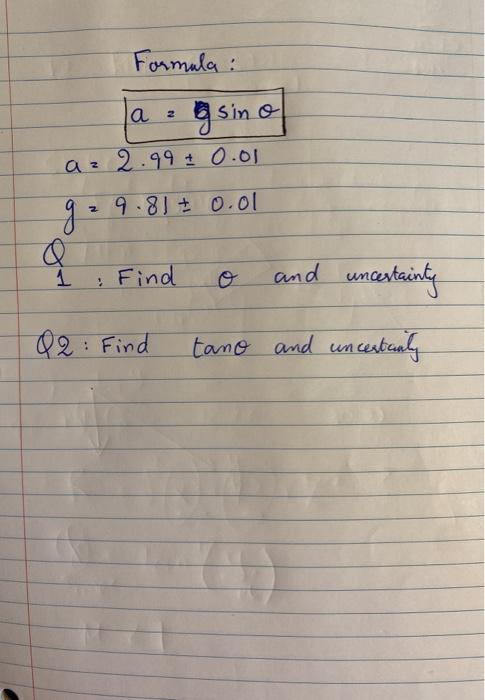 Formula :
a = g sin θ
a = 2.99 ± 0.01
g = 9.81 ± 0.01
Q
1 : Find θ and uncertainty
Q2 : Find tanθ and uncertainty